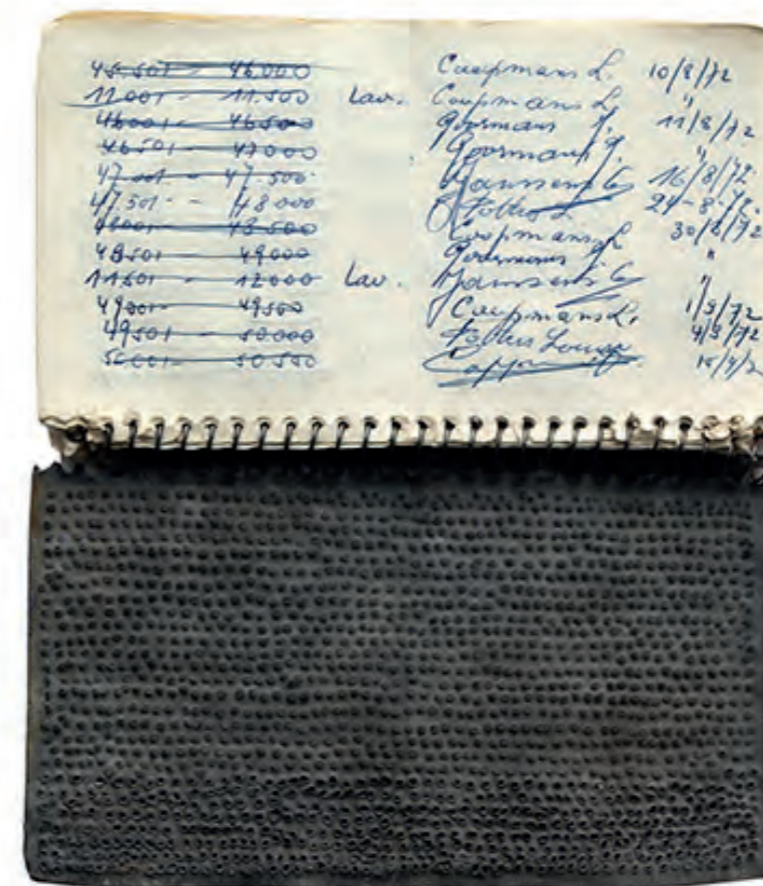 45.501 - 46.000 Coopmans L. 10/8/72
11.001 - 11.500 Lav. Coopmans L. "
46001 - 46500 Goormans J. 11/8/72
46501 - 47000 Goormans J. "
47.001 - 47.500 Janssens 16/8/72
47.501 - 48.000 L. 24-8-72.
48001 - 48.500 Coopmans L 30/8/72
48501 - 49000 Goormans J. "
11501 - 12000 Lav. Janssens "
49001 - 49500 Coopmans L. 1/9/72
49501 - 50.000 4/9/72
50.001 - 50.500